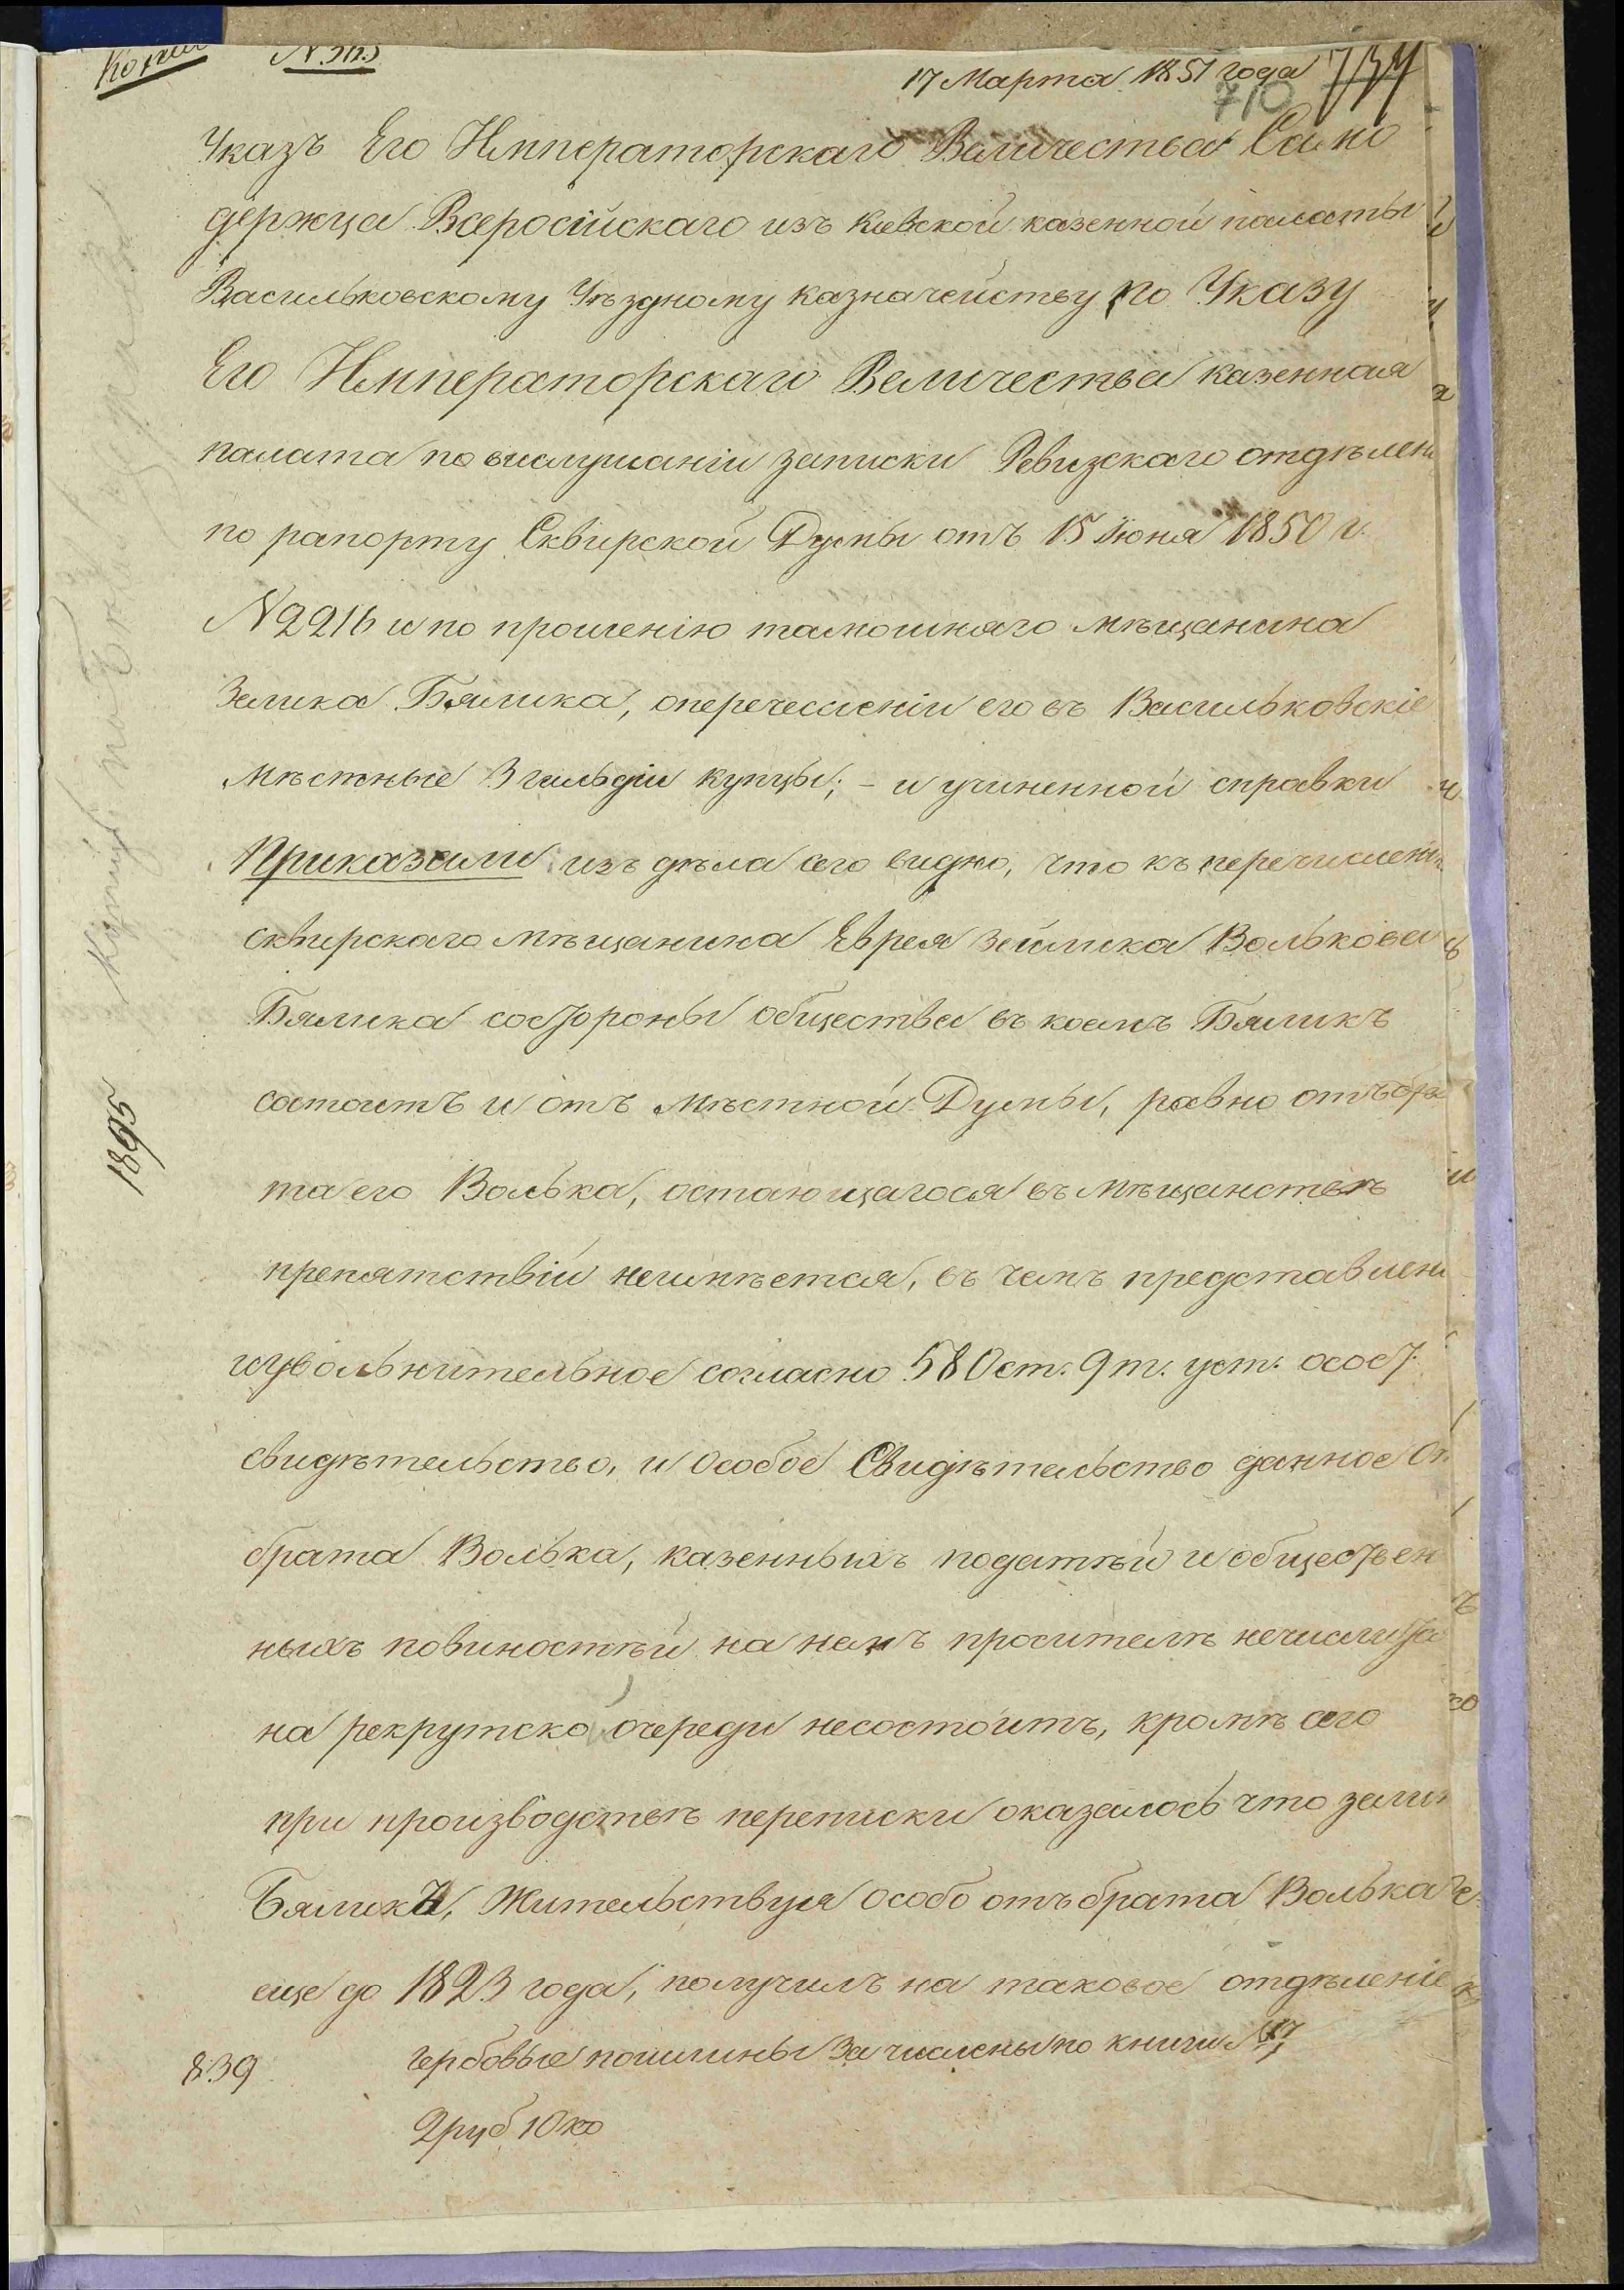 Копия
17 Марта 1851 года 734
710
Указъ Его Императорскаго Величества Само
держца Всеросійскаго изъ Кіевской казенной палаты
Васильковскому Уѣздному казначейству По Указу
Его Императорскаго Величества казенная
палата по выслушаніи записки Ревизскаго отдѣлен
по рапорту Сквирской Думы отъ 15 Июня 1850 г.
N 2216 и по прошенію тамошняго мѣщанина
Зелика Бялика, о перечесленіи его въ Васильковскіе
мѣстные 3 гильдіи купцы; – и учиненной справки
Приказали: изъ дѣла сего видно, что къ перечислен
сквирскаго мѣщанина Еврея Зейлика Волькова
Бялика состороны общества въ коемъ Бяликъ
состоитъ и отъ мѣстной Думы, равно отъ бра
та его Волька, остающагося въ мѣщанствѣ
препятствій неимѣется, въ чемъ представлен
и увольнительное согласно 580 ст. 9 т. уст. о сост.
свидѣтельство, и особое Свидѣтельство данное от
брата Волька, казенныхъ податѣй и обществен
ныхъ повиностѣй на немъ просителѣ нечислится
на рекрутской очереди несостоитъ, кромѣ сего
при производствѣ переписки оказалось что Зелик
Бяликъ, Жительствуя особо отъ брата Волька
еще до 1823 года, получилъ на таковое отдѣленіе
839 гербовые пошлины За числены по книги
2 руб 10 ко
1895